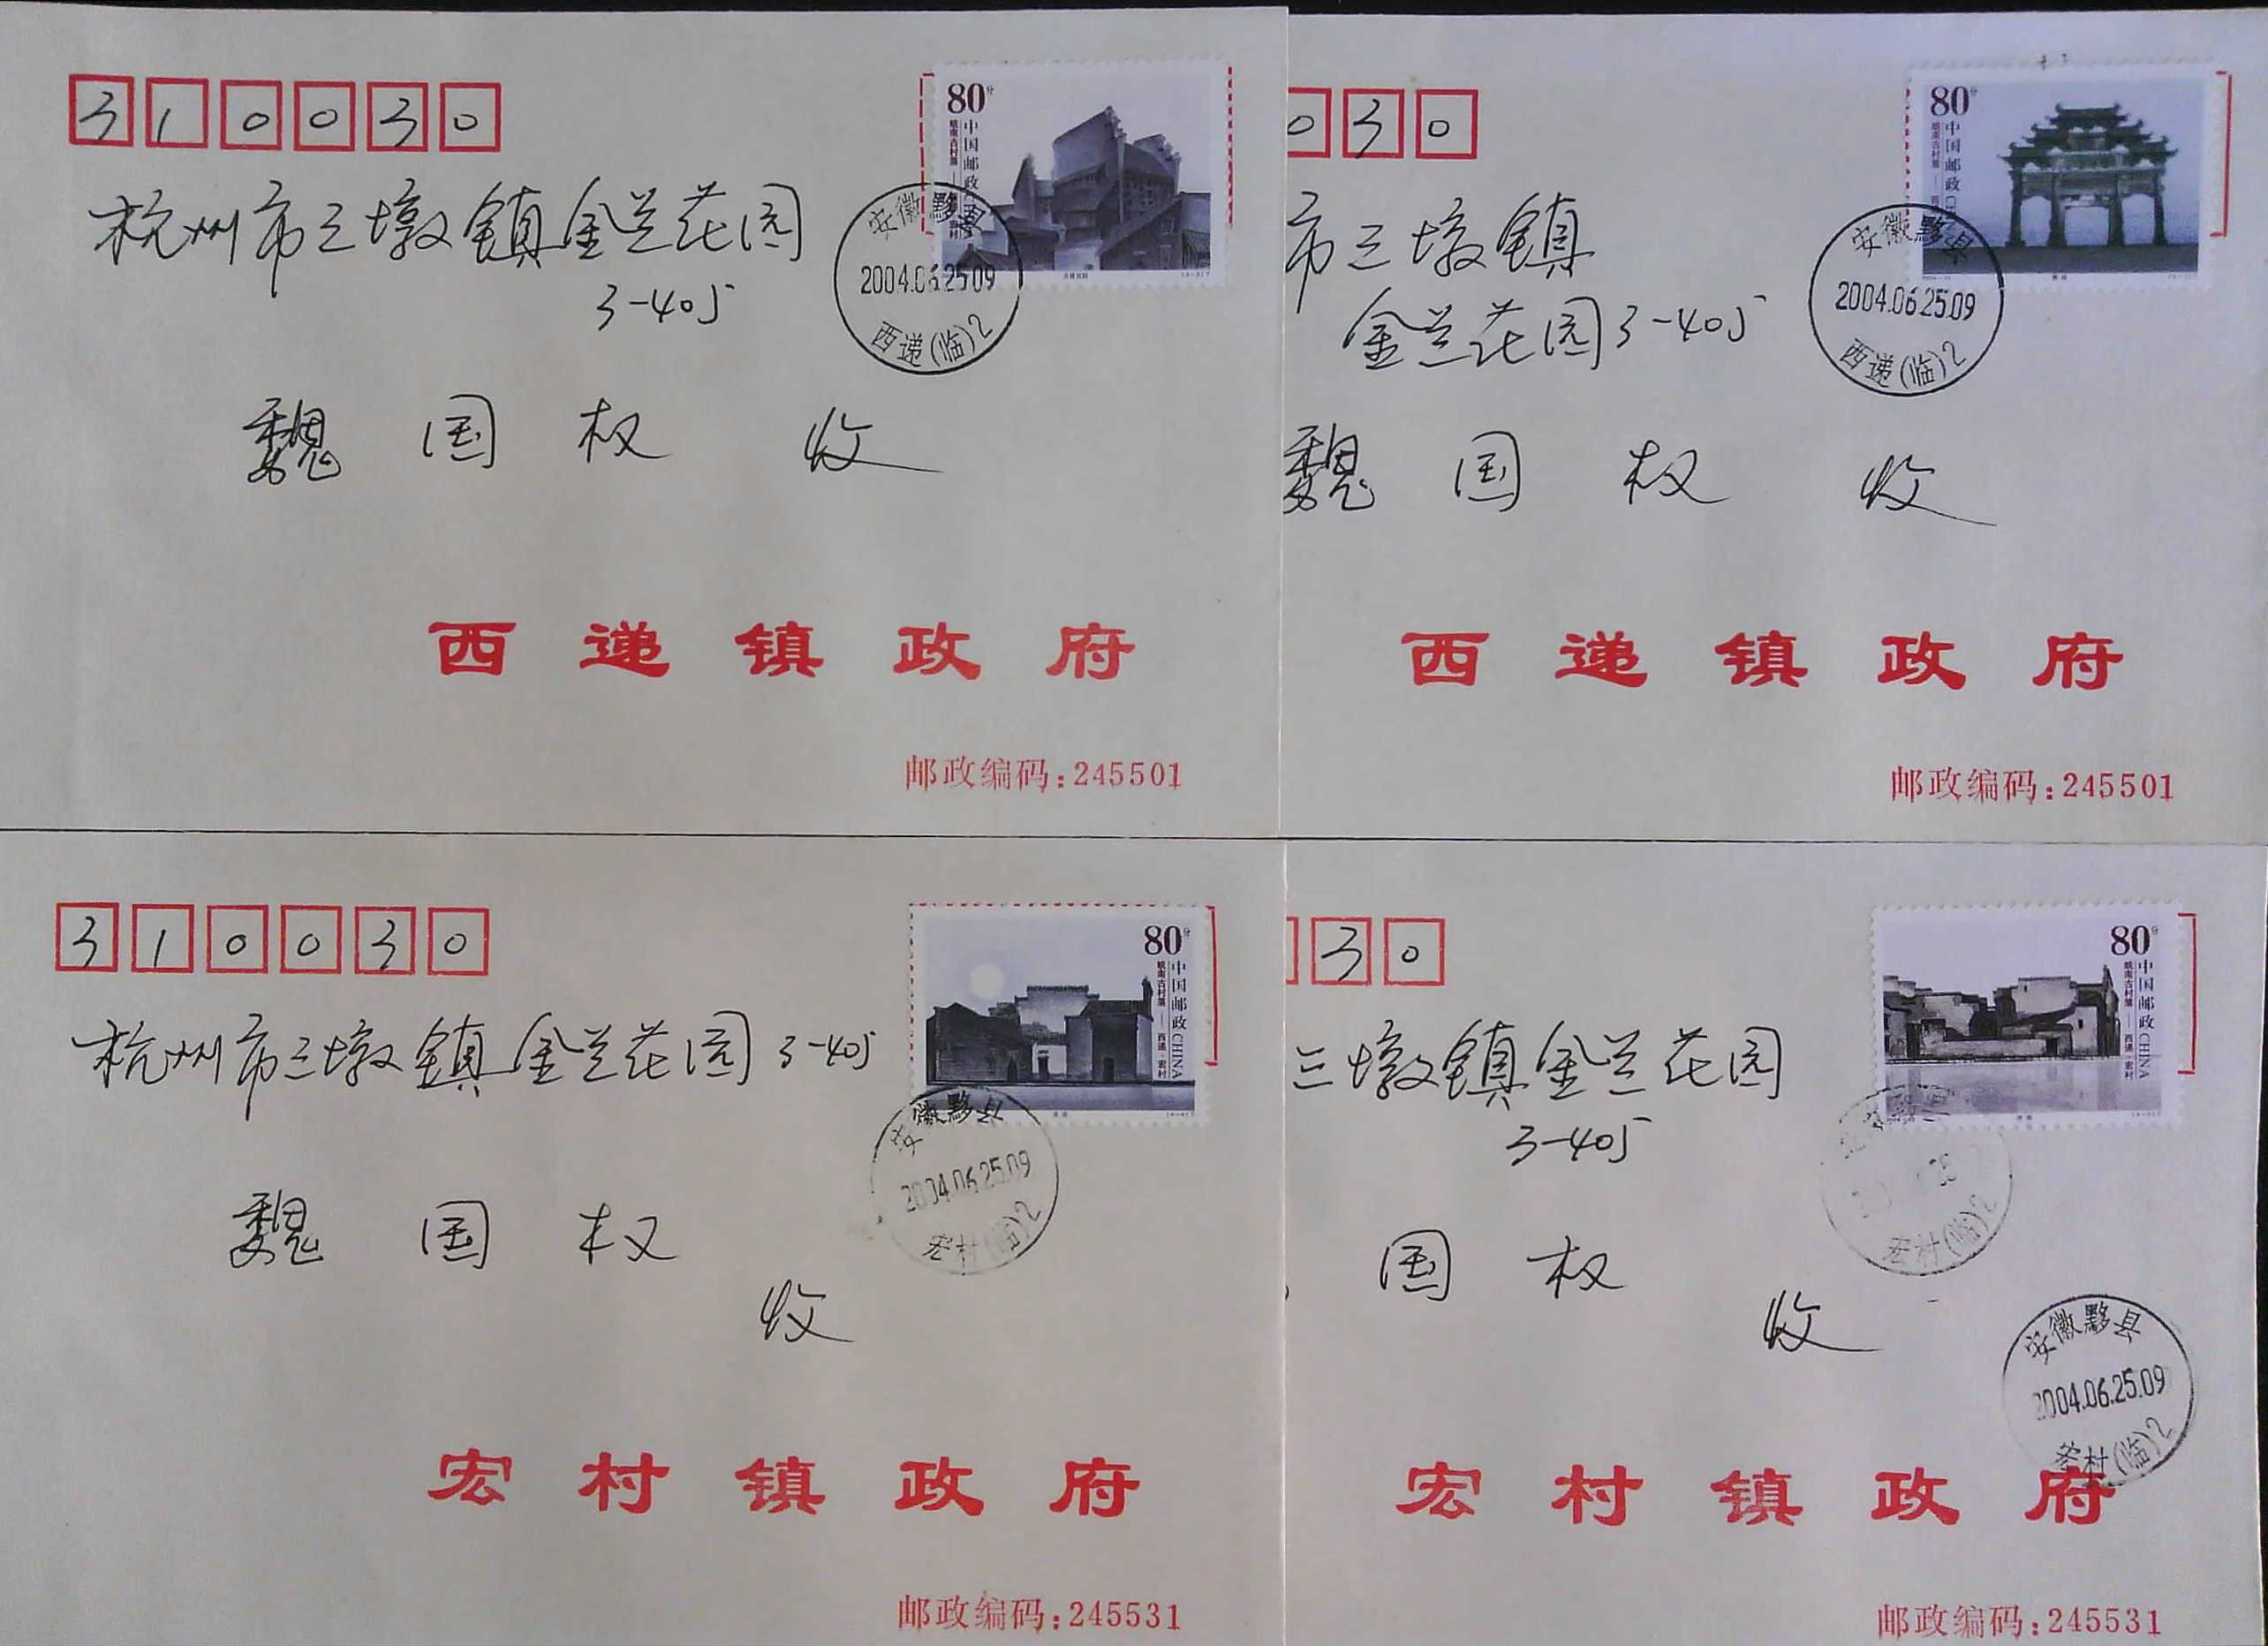 310030
80分
中国邮政
皖南古村落
杭州市三墩镇金兰花园
3-405
安徽黟县
2004.06.25.09
西递(临)2
魏国权 收
西递镇政府
邮政编码:245501
030
80分
中国邮政
皖南古村落
市三墩镇
金兰花园3-405
安徽黟县
2004.06.25.09
西递(临)2
魏国权 收
西递镇政府
邮政编码:245501
310030
80分
中国邮政 CHINA
皖南古村落——西递·宏村
杭州市三墩镇金兰花园 3-405
安徽黟县
2004.06.25.09
宏村(临)2
魏国权
收
宏村镇政府
邮政编码:245531
30
80分
中国邮政 CHINA
皖南古村落——西递·宏村
三墩镇金兰花园
3-405
宏村(临)2
国权
收
安徽黟县
2004.06.25.09
宏村(临)2
宏村镇政府
邮政编码:245531